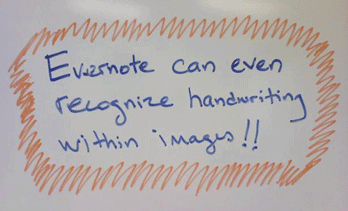 Evernote can even
recognize handwriting
within images!!